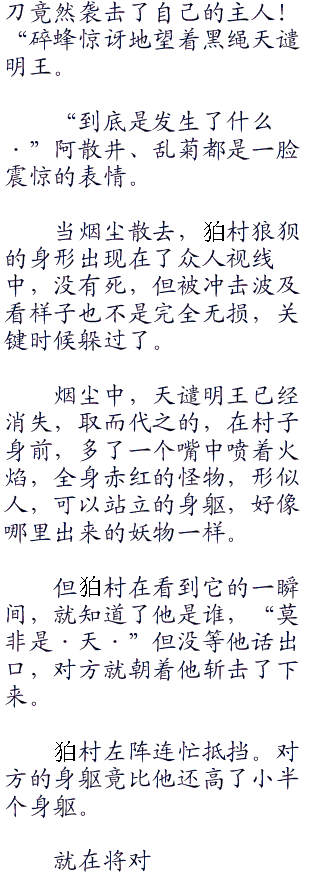 刀竟然袭击了自己的主人！
“碎蜂惊讶地望着黑绳天谴
明王。
“到底是发生了什么
·”阿散井、乱菊都是一脸
震惊的表情。
当烟尘散去，狛村狼狈
的身形出现在了众人视线
中，没有死，但被冲击波及
看样子也不是完全无损，关
键时候躲过了。
烟尘中，天谴明王已经
消失，取而代之的，在村子
身前，多了一个嘴中喷着火
焰，全身赤红的怪物，形似
人，可以站立的身躯，好像
哪里出来的妖物一样。
但狛村在看到它的一瞬
间，就知道了他是谁，“莫
非是·天·”但没等他话出
口，对方就朝着他斩击了下
来。
狛村左阵连忙抵挡。对
方的身躯竟比他还高了小半
个身躯。
就在将对